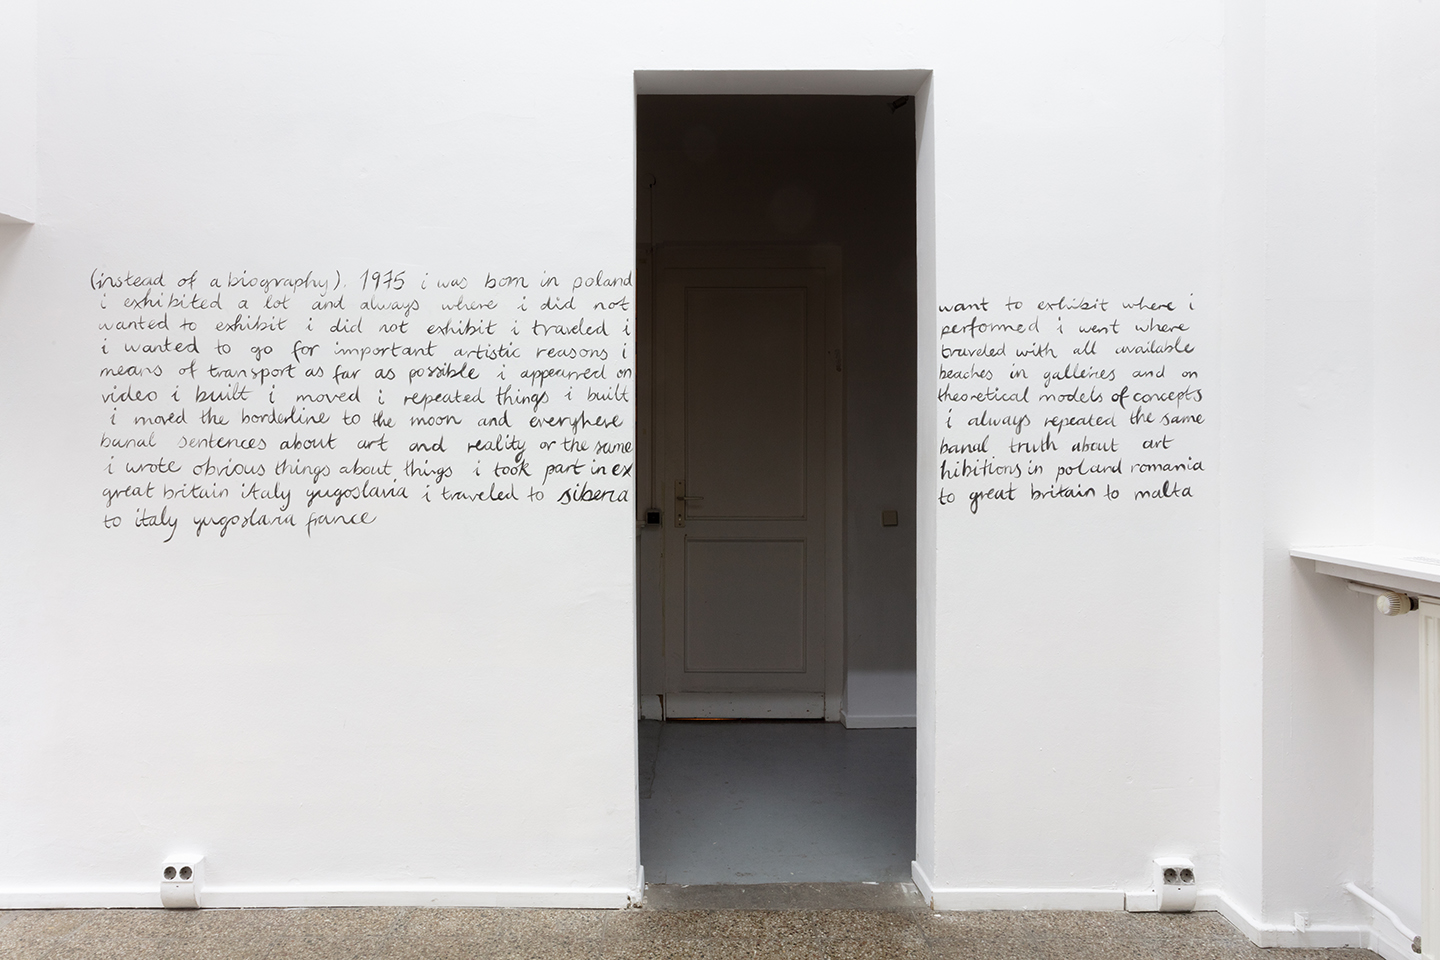 (instead of a biography). 1975 i was born in poland
i exhibited a lot and always where i did not want to exhibit where i
wanted to exhibit i did not exhibit i traveled i performed i went where
i wanted to go for important artistic reasons i traveled with all available
means of transport as far as possible i appearred on beaches in galleries and on
video i built i moved i repeated things i built theoretical models of concepts
i moved the borderline to the moon and everyhere i always repeated the same
banal sentences about art and reality or the same banal truth about art
i wrote obvious things about things i took part in ex hibitions in poland romania
great britain italy yugoslavia i traveled to siberia to great britain to malta
to italy yugoslavia france